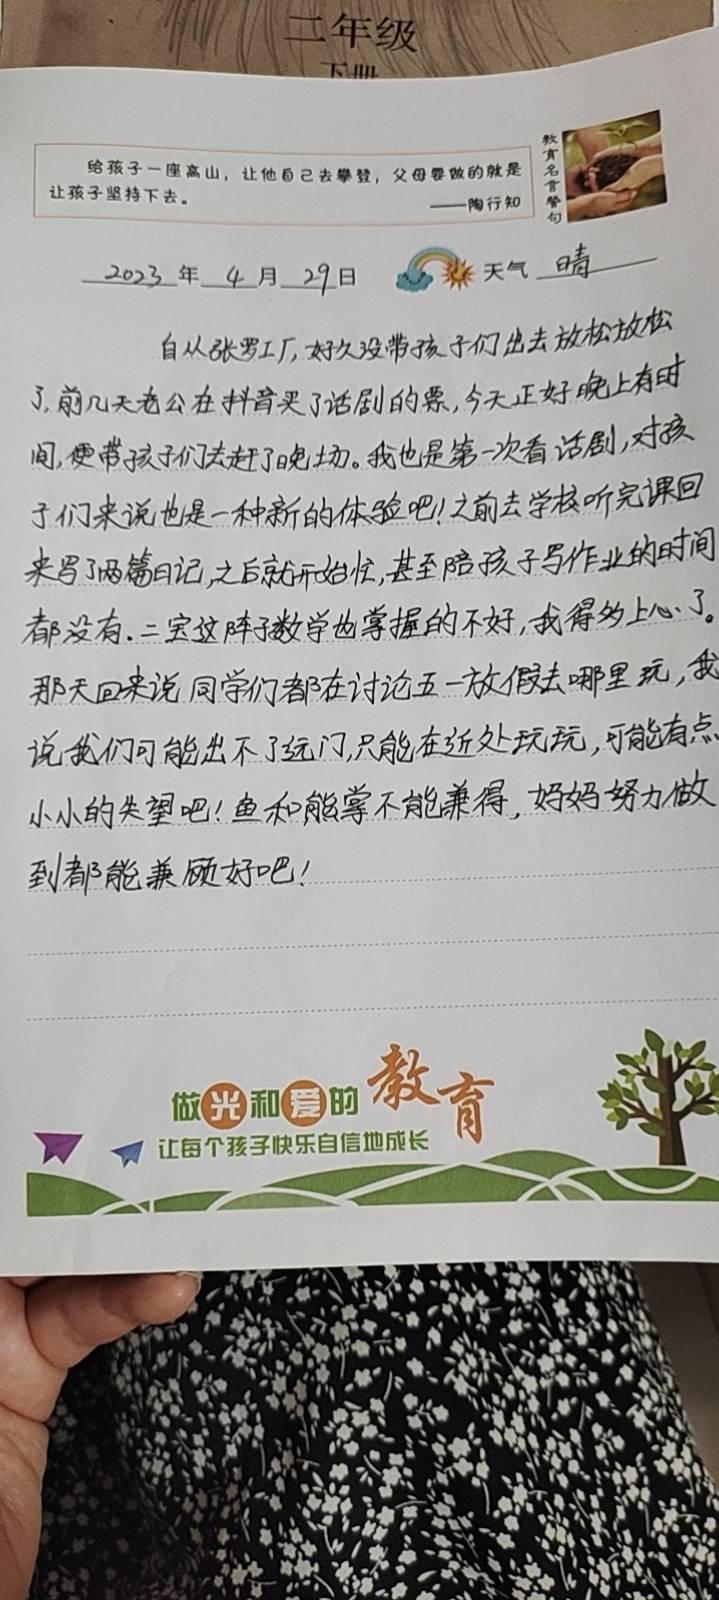 二年级
下册
给孩子一座高山，让他自己去攀登，父母要做的就是
让孩子坚持下去。
——陶行知
教育名言警句
2023年4月29日 天气 晴
自从张罗工厂，好久没带孩子们出去放松放松
了，前几天老公在抖音买了话剧的票，今天正好晚上有时
间，便带孩子们去赶了晚场。我也是第一次看话剧，对孩
子们来说也是一种新的体验吧！之前去学校听完课回
来写了两篇日记，之后就开始忙，甚至陪孩子写作业的时间
都没有．二宝这阵子数学也掌握的不好，我得多上心了。
那天回来说同学们都在讨论五一放假去哪里玩，我
说我们可能出不了远门，只能在近处玩玩，可能有点
小小的失望吧！鱼和熊掌不能兼得，妈妈努力做
到都能兼顾好吧！
做光和爱的教育
让每个孩子快乐自信地成长